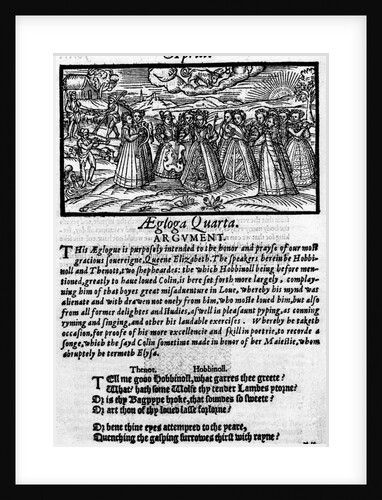 Aprill.
Ægloga Quarta.
ARGVMENT.
THis Æglogue is purposely intended to the honor and prayse of our most
gracious souereigne, Queene Elizabeth. The speakers herein be Hobbi-
noll and Thenott, two shepheardes: the which Hobbinoll being before men-
tioned, greatly to haue loued Colin, is here set forth more largely, complay-
ning him of that boyes great misaduenture in Loue, whereby his mynd was
alienate and with drawen not onely from him, who moste loued him, but also
from all former delightes and studies, aswell in pleasaunt pyping, as conning
ryming and singing, and other his laudable exercises. Whereby he taketh
occasion, for proofe of his more excellencie and skill in poetrie, to recorde a
songe, which the sayd Colin sometime made in honor of her Maiestie, whom
abruptely he termeth Elysa.
Thenot. Hobbinoll.
TEll me good Hobbinoll, what garres thee greete?
What? hath some Wolfe thy tender Lambes ytorne?
Or is thy Bagpype broke, that soundes so sweete?
Or art thou of thy loued lasse forlorne?
Or bene thine eyes attempred to the yeare,
Quenching the gasping furrowes thirst with rayne?